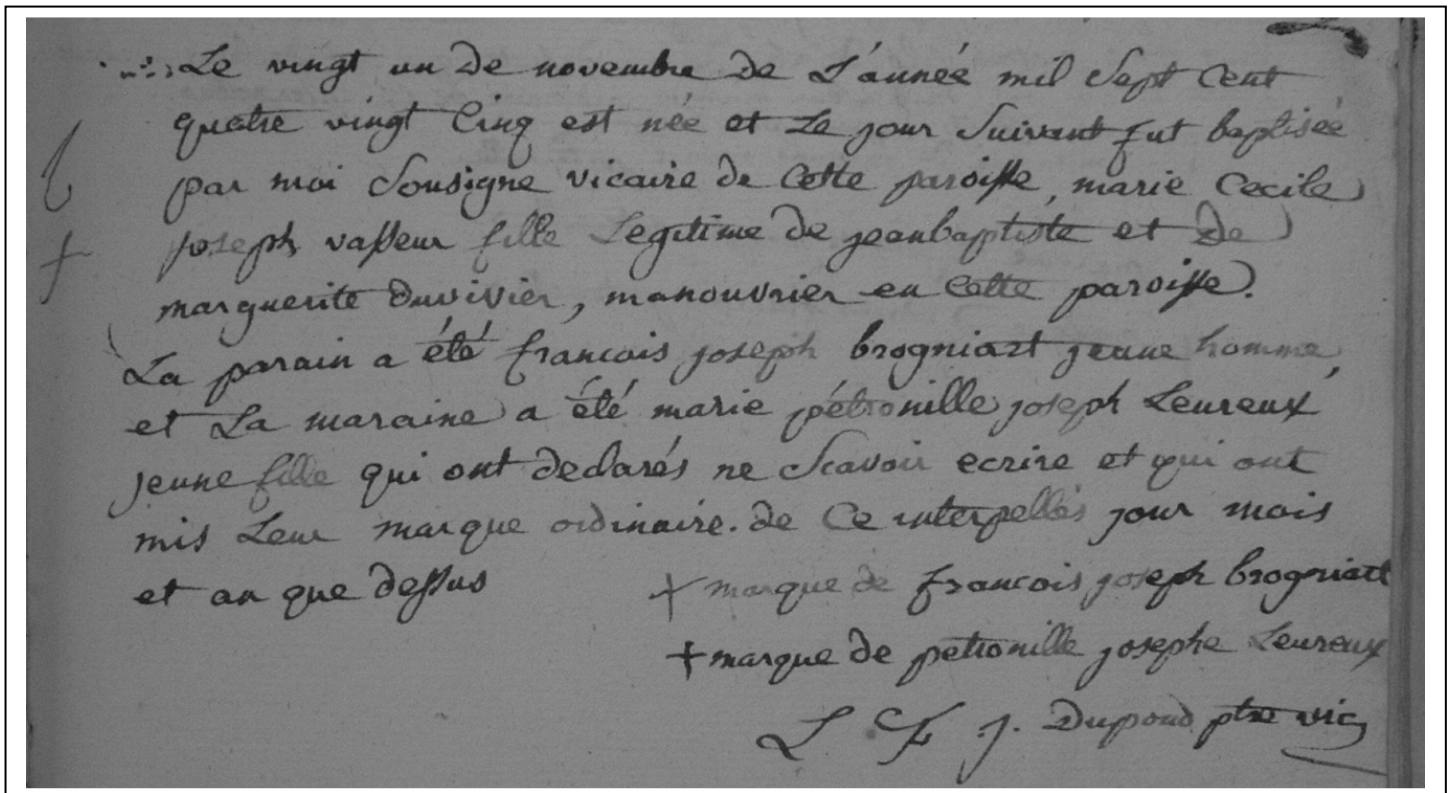 Le vingt un de novembre de L'année mil Sept Cent
quatre vingt Cinq est née et Le jour Suivant fut baptisée
par moi Sousigne vicaire de Cette paroisse, marie Cecile
joseph vasseur fille Legitime de jeanbaptiste et de
marguerite duvivier, manouvrier en Cette paroisse.
La parain a été francois joseph brogniart jeune homme,
et La maraine a été marie pétronille joseph Leureux
jeune fille qui ont declarés ne Scavoir ecrire et qui ont
mis Leur marque ordinaire. de Ce interpellés jour mois
et an que dessus
+ marque de francois joseph brogniart
+ marque de petronille josephe Leureux
L F j. Dupond ptre vic